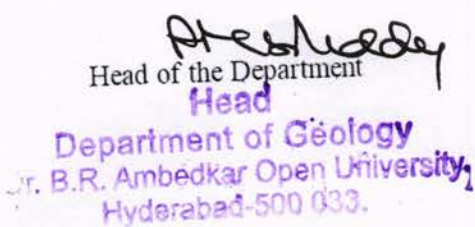 Head of the Department
Head
Department of Geology
r. B.R. Ambedkar Open University,
Hyderabad-500 033.